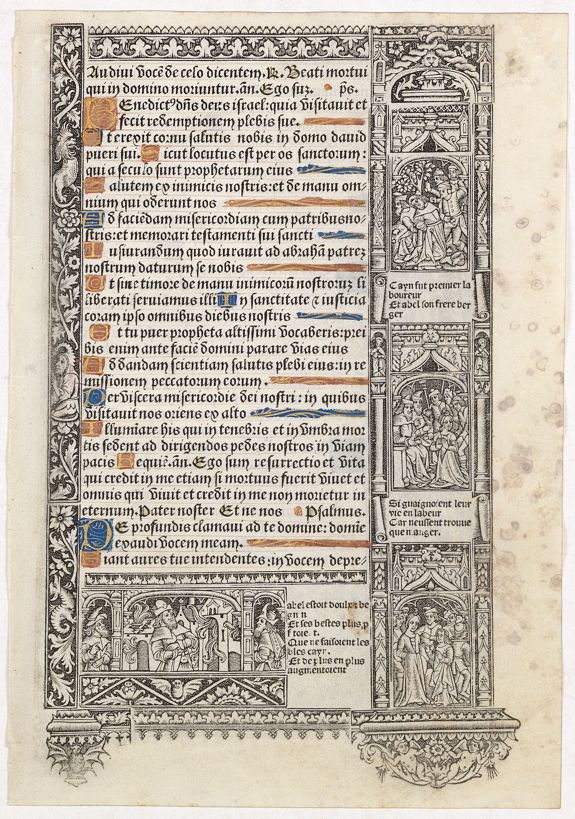 Audiui vocē de celo dicentem. ℟. Beati mortui
qui in domino moriuntur. añ. Ego suz. p̄s.
Benedict⁹ dn̄s deus israel: quia visitauit et
fecit redemptionem plebis sue.
Et erexit cornu salutis nobis in domo dauid
pueri sui. Sicut locutus est per os sanctorum:
qui a seculo sunt prophetarum eius
Salutem ex inimicis nostris: et de manu om-
nium qui oderunt nos
Ad faciēdam misericordiam cum patribus no-
stris: et memorari testamenti sui sancti
Iusiurandum quod iurauit ad abrahā patrez
nostrum daturum se nobis
Ut sine timore de manu inimicorū nostroruz
liberati seruiamus illi In sanctitate ⁊ iusticia
coram ipso omnibus diebus nostris
Et tu puer propheta altissimi vocaberis: prei
bis enim ante faciē domini parare vias eius
Ad dandam scientiam salutis plebi eius: in re
missionem peccatorum eorum.
Per viscera misericordie dei nostri: in quibus
visitauit nos oriens ex alto
Illuminare his qui in tenebris et in vmbra mor
tis sedent ad dirigendos pedes nostros in viam
pacis Requiē. añ. Ego sum resurrectio et vita
qui credit in me etiam si mortuus fuerit viuet et
omnis qui viuit et credit in me non morietur in
eternum. Pater noster Et ne nos Psalmus.
De profundis clamaui ad te domine: domie
exaudi vocem meam.
Fiant aures tue intendentes: in vocem depre-
Cayn fut premier la
boureur
Et abel son frere ber
ger
Si guaignoient leur
vie en labeur
Car neussent trouue
que
abel estoit doulx
Et ses bestes plus
Que ne faisoient les
bles cayn.
Et de plus en plus
augmentoient